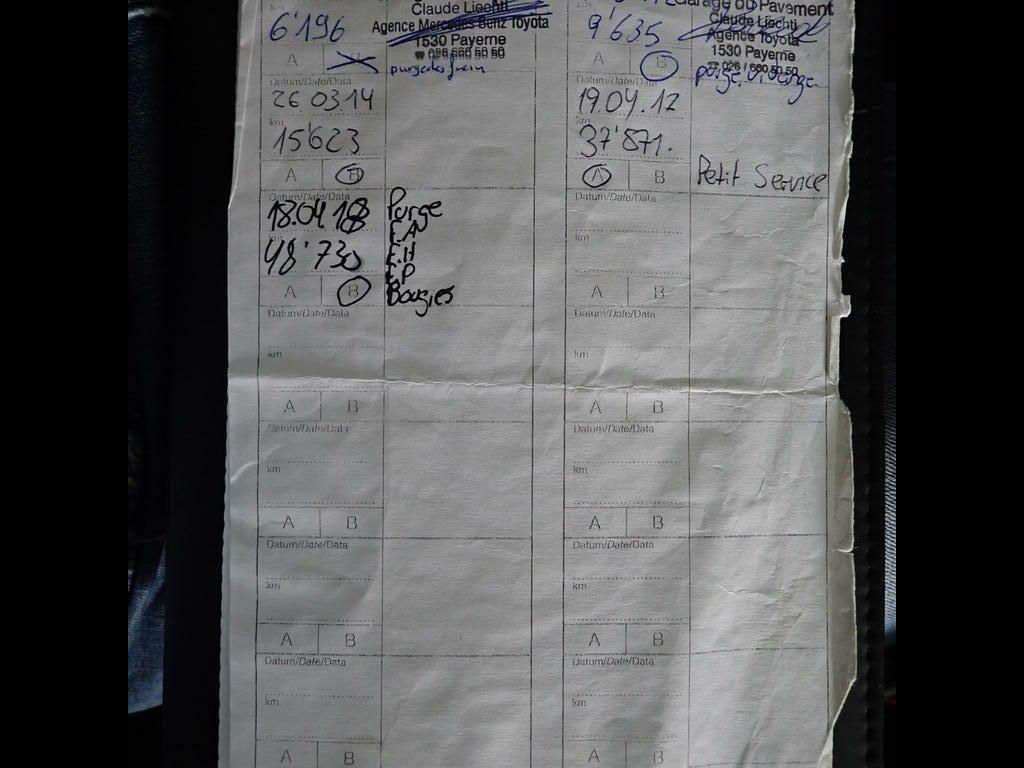 Claude Liechti
6'196 Agence Mercedes Benz Toyota
1530 Payerne
☎ 026 660 50 50
A
purge des frein
Datum/Date/Data
26.03.14
km
15'623
A B
Datum/Date/Data
18.04 18 Purge
E.H
48'730 E.P
A B Bougies
Datum/Date/Data
km
A B
Datum/Date/Data
km
A B
Datum/Date/Data
km
A B
Datum/Date/Data
km
A B
Garage du Pavement
9'635 Claude Liechti
Agence Toyota
1530 Payerne
☎ 026 / 660 50 50
A B
Datum/Date/Data
km
37'871.
A B Petit Service
Datum/Date/Data
km
A B
Datum/Date/Data
km
A B
Datum/Date/Data
km
A B
Datum/Date/Data
km
A B
Datum/Date/Data
km
A B